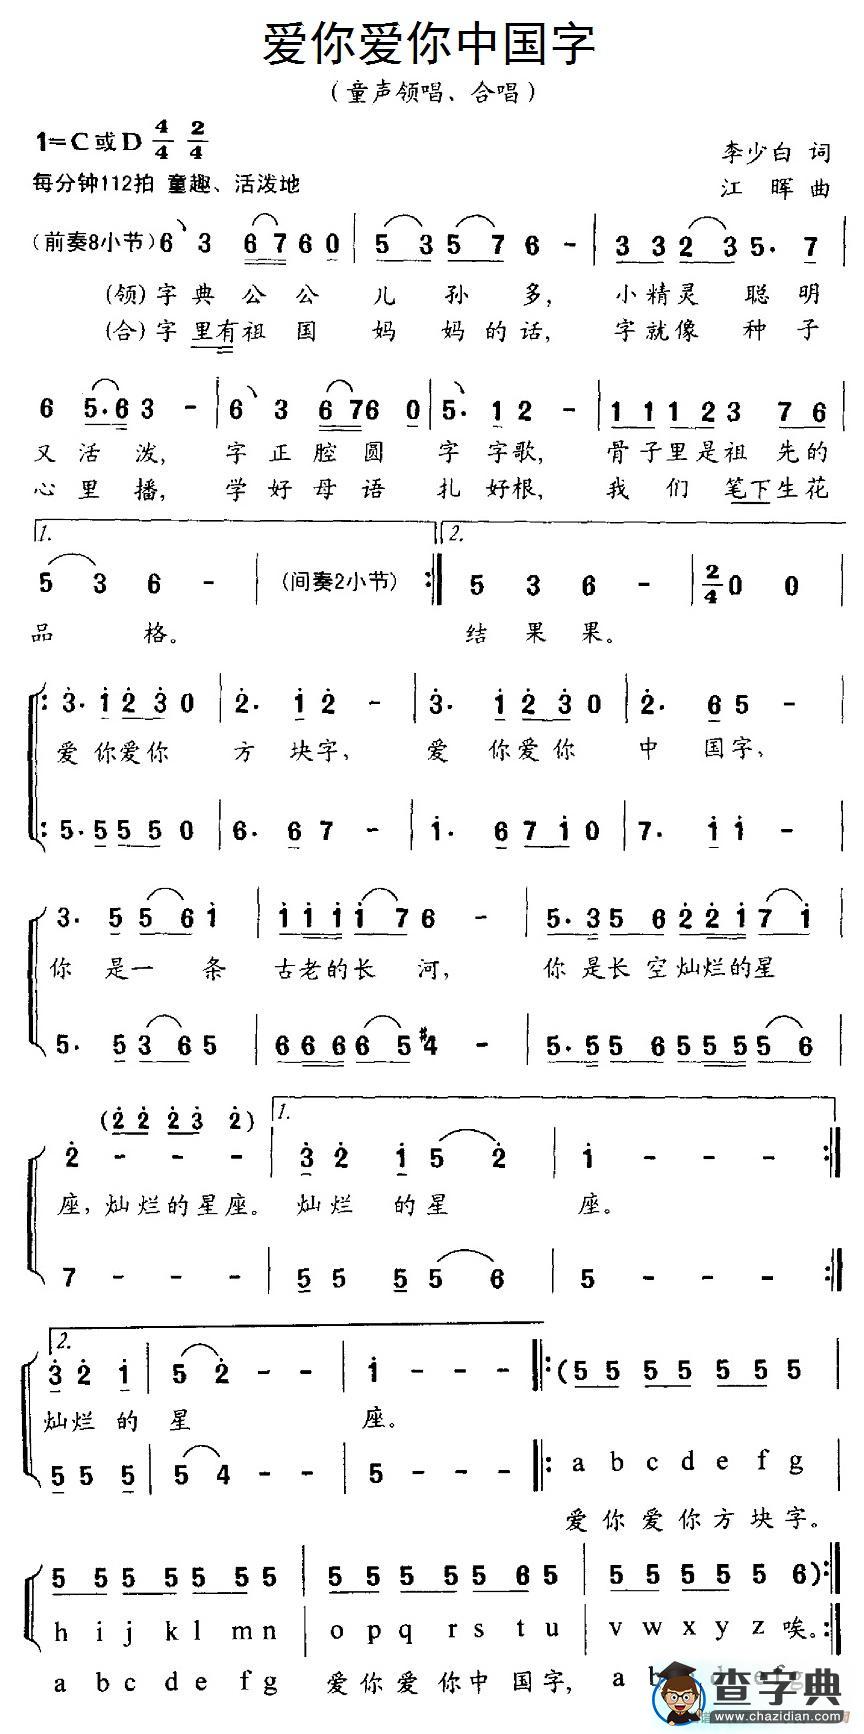 爱你爱你中国字
（童声领唱、合唱）
1=C或D 4/4 2/4
李少白 词
每分钟112拍 童趣、活泼地
江 晖 曲
（前奏8小节）6 3 6 7 6 0 | 5 3 5 7 6 - | 3 3 2 3 5. 7
(领)字典公公儿孙多，小精灵聪明
(合)字里有祖国妈妈的话，字就像种子
6 5.6 3 - | 6 3 6 7 6 0 | 5. 1 2 - | 1 1 1 2 3 7 6
又活泼，字正腔圆字字歌，骨子里是祖先的
心里播，学好母语扎好根，我们笔下生花
1. 2.
5 3 6 - | （间奏2小节） :| 5 3 6 - | 2/4 0 0
品格。 结果果。
|: 3. 1 2 3 0 | 2. 1 2 - | 3. 1 2 3 0 | 2. 6 5 - |
爱你爱你方块字，爱你爱你中国字，
|: 5. 5 5 5 0 | 6. 6 7 - | 1. 6 7 1 0 | 7. 1 1 - |
3. 5 5 6 1 | 1 1 1 1 1 7 6 - | 5. 3 5 6 2 2 1 7 1 |
你是一条古老的长河，你是长空灿烂的星
5. 5 3 6 5 | 6 6 6 6 6 5 #4 - | 5. 5 5 6 5 5 5 5 6 |
(2 2 2 3 2) 1.
2 - - - | 3 2 1 5 2 | 1 - - - :|
座，灿烂的星座。灿烂的星座。
7 - - - | 5 5 5 5 6 | 5 - - - :|
2.
3 2 1 | 5 2 - - | 1 - - - |: (5 5 5 5 5 5 5 |
灿烂的星座。
5 5 5 | 5 4 - - | 5 - - - |: a b c d e f g
爱你爱你方块字。
5 5 5 5 5 5 5 | 5 5 5 5 5 6 5 | 5 5 5 5 5 6) :|
h i j k l m n | o p q r s t u | v w x y z 唉。:|
a b c d e f g 爱你爱你中国字， a b c d e f g
查字典
www.chazidian.com